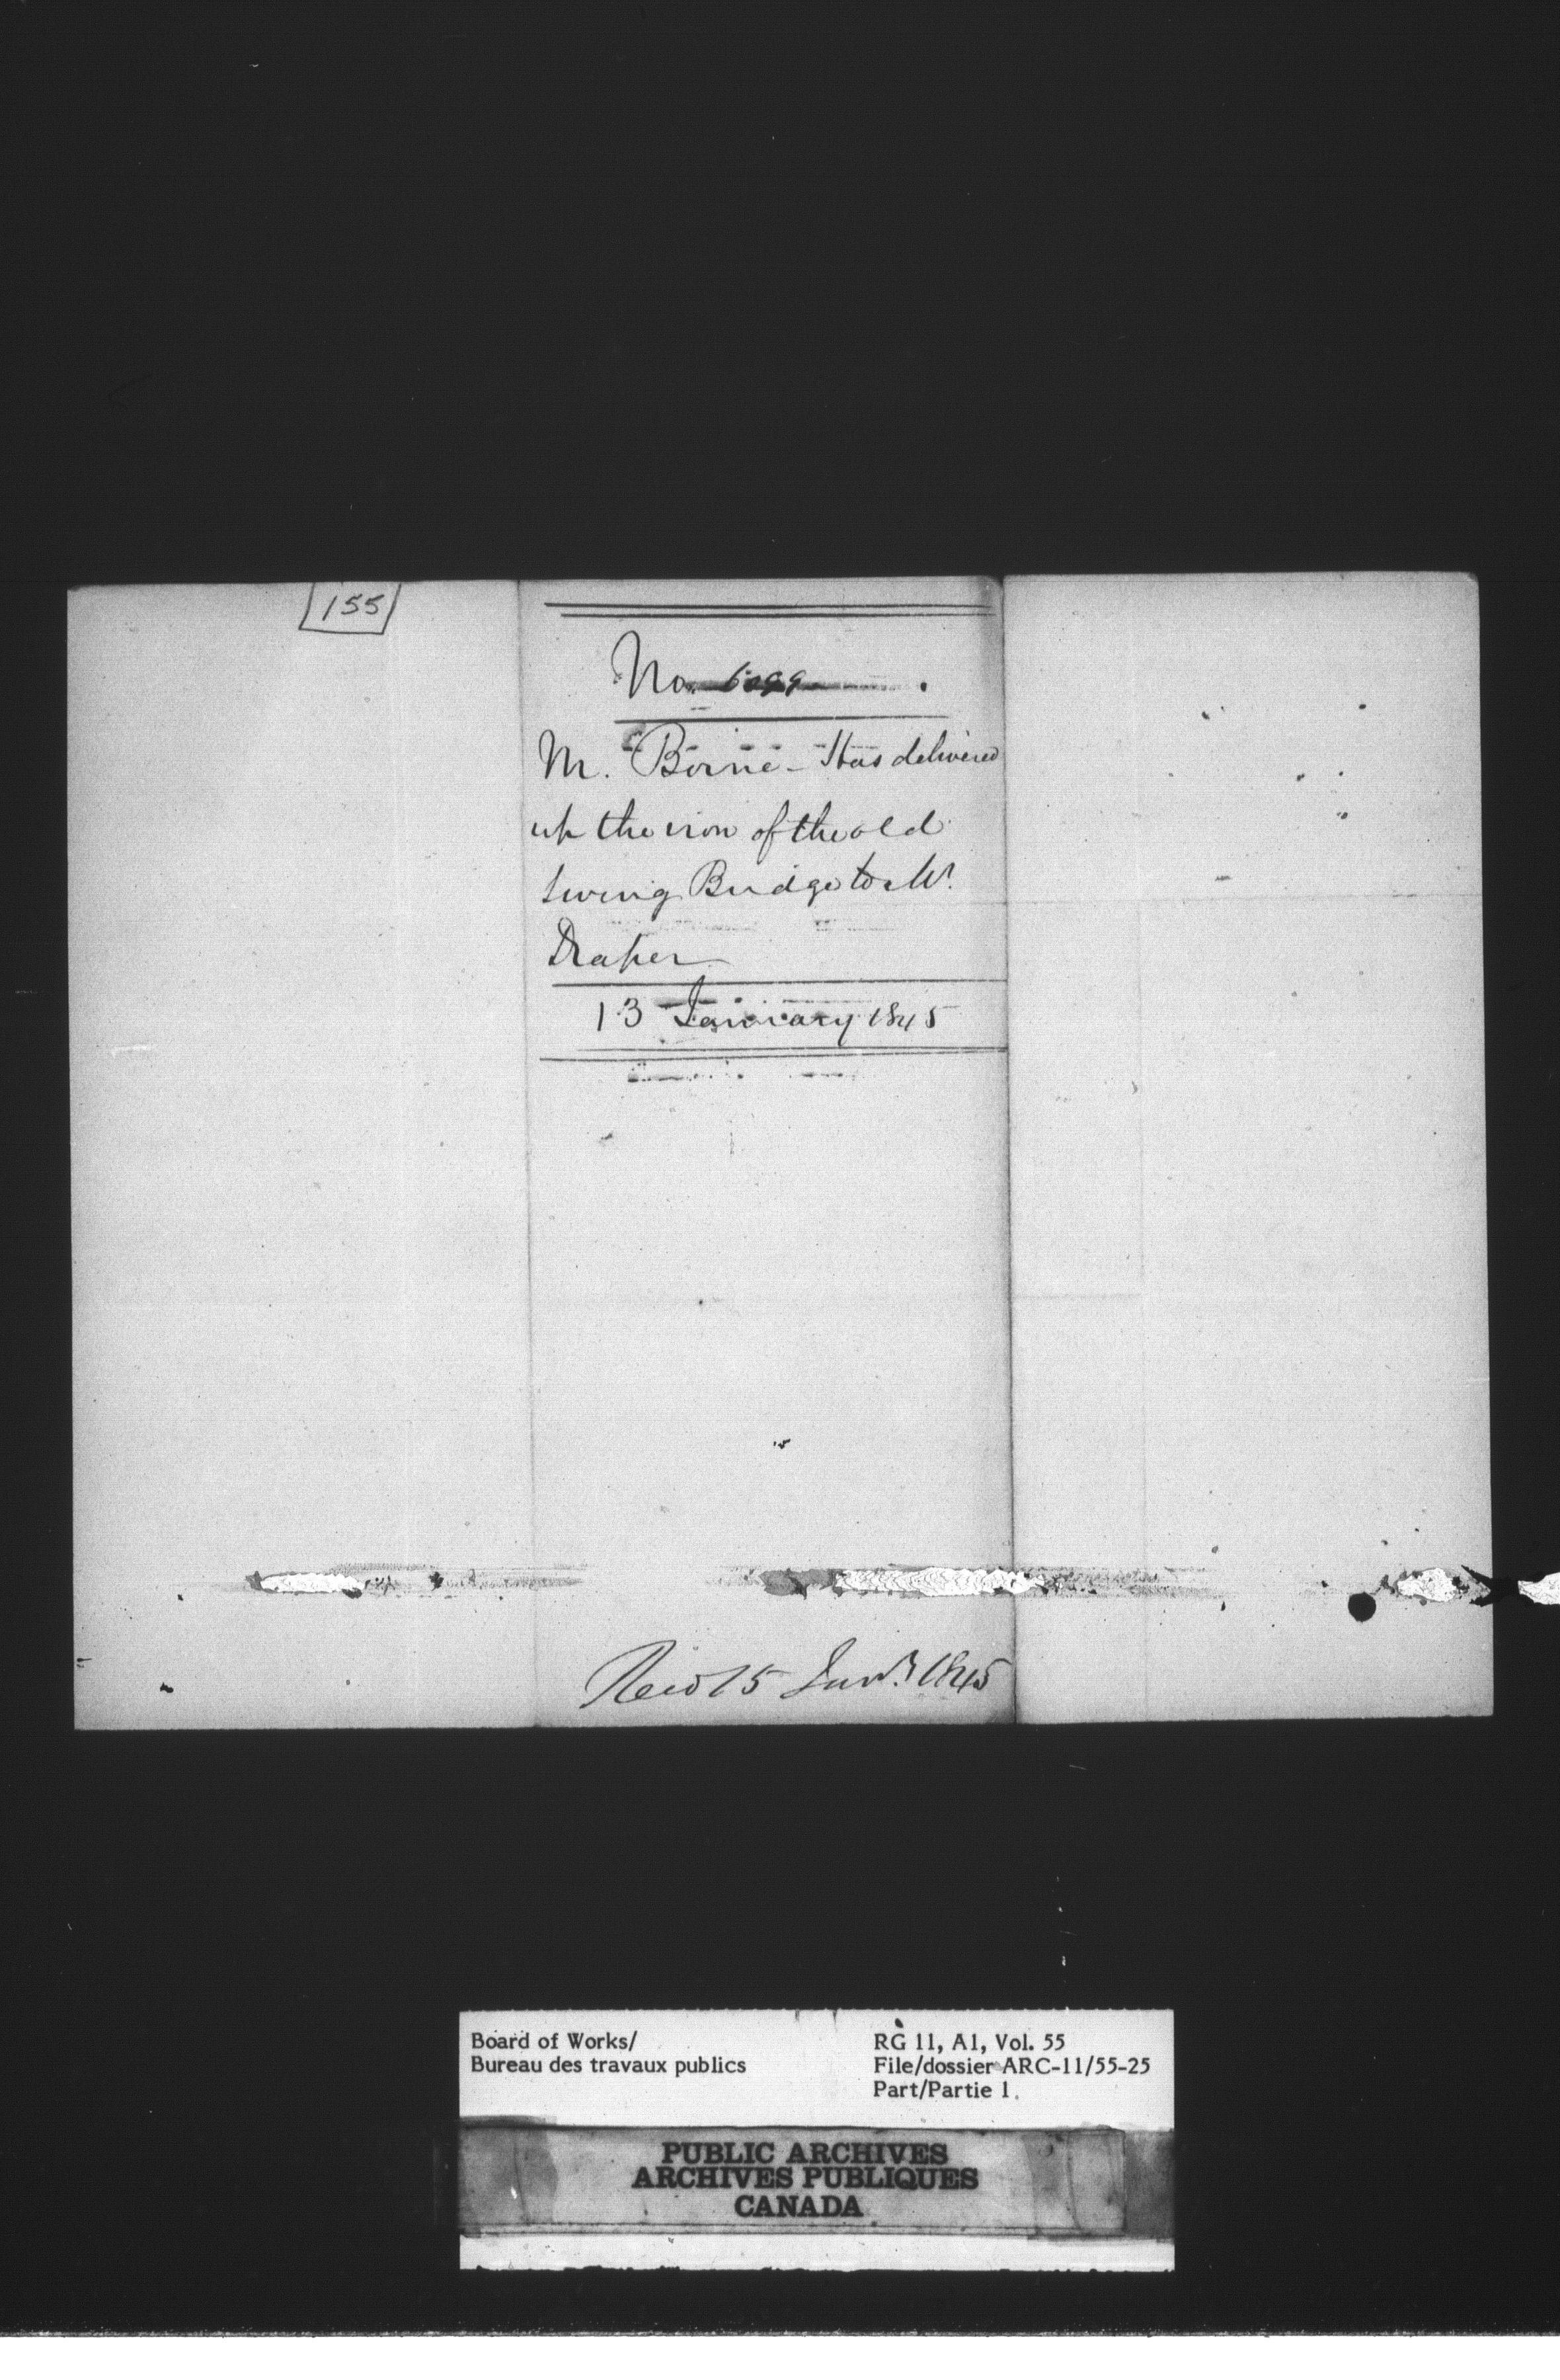 155
No. 6099
M. Borne - Has delivered
up the iron of the old
Swing Bridge to Mr.
Draper
13 January 1845
Recd 15 Jany. 1845
Board of Works/
Bureau des travaux publics
RG 11, A1, Vol. 55
File/dossier ARC-11/55-25
Part/Partie 1
PUBLIC ARCHIVES
ARCHIVES PUBLIQUES
CANADA